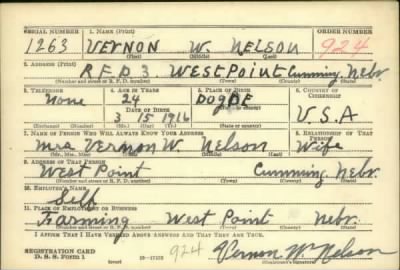 SERIAL NUMBER 1. NAME (Print) ORDER NUMBER
1263 VERNON W. NELSON 924
(First) (Middle) (Last)
2. ADDRESS (Print)
R.F.D 3. WEST POINT Cumming, Nebr.
(Number and street or R. F. D. number) (Town) (County) (State)
3. TELEPHONE 4. AGE IN YEARS 5. PLACE OF BIRTH 6. COUNTRY OF CITIZENSHIP
None 24 DODGE
DATE OF BIRTH (Town or county)
3 15 1916 U.S.A
(Exchange) (Number) (Mo.) (Day) (Yr.) (State or country)
7. NAME OF PERSON WHO WILL ALWAYS KNOW YOUR ADDRESS 8. RELATIONSHIP OF THAT PERSON
Mrs Vernon W. Nelson Wife
(Mr., Mrs., Miss) (First) (Middle) (Last)
9. ADDRESS OF THAT PERSON
West Point Cumming, Nebr.
(Number and street or R. F. D. number) (Town) (County) (State)
10. EMPLOYER'S NAME
Self
11. PLACE OF EMPLOYMENT OR BUSINESS
Farming West Point Nebr.
(Number and street or R. F. D. number) (Town) (County) (State)
I AFFIRM THAT I HAVE VERIFIED ABOVE ANSWERS AND THAT THEY ARE TRUE.
REGISTRATION CARD
D. S. S. Form 1 (over) 924 Vernon W Nelson
(Registrant's signature)